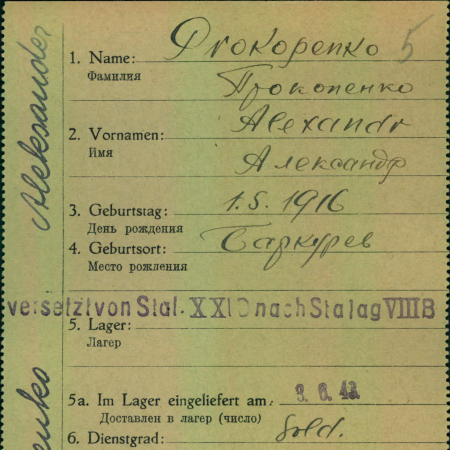 Aleksander
enko
5
1. Name: Prokopenko
Фамилия Прокопенко
2. Vornamen: Alexandr
Имя Александр
3. Geburtstag: 1.5.1916
День рождения
4. Geburtsort: Саркурев
Место рождения
versetzt von Stal. XXI D nach Stalag VIII B
5. Lager:
Лагер
5a. Im Lager eingeliefert am:
Доставлен в лагер (число)
6. Dienstgrad: Sold.